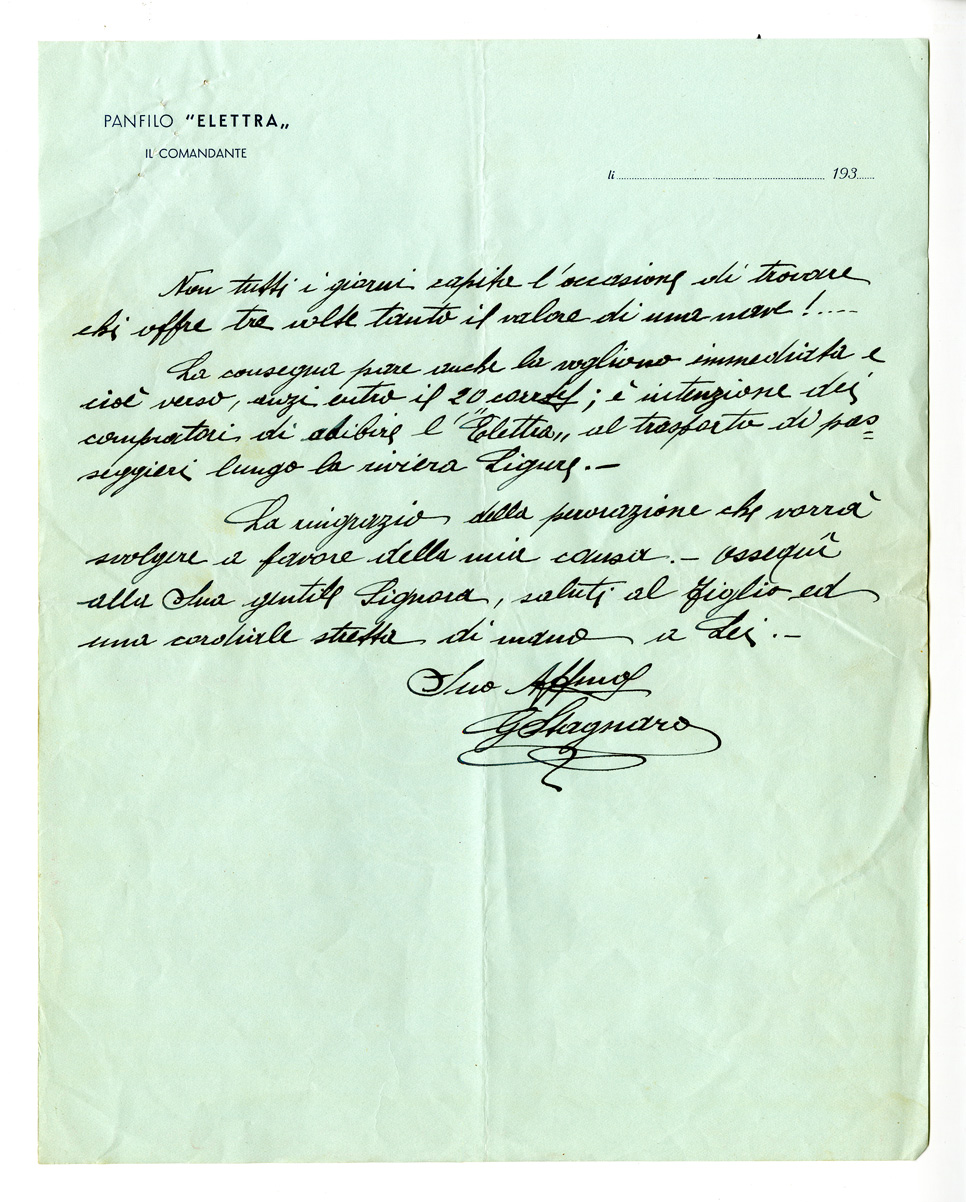 PANFILO "ELETTRA„
IL COMANDANTE
li ........................ 193......
Non tutti i giorni capita l'occasione di trovare
chi offre tre volte tanto il valore di una nave !....
La consegna pare anche la vogliono immediata e
cioè verso, anzi entro il 20 corrte; è intenzione dei
compratori di adibire l'"Elettra„ al trasporto di pas=
seggieri lungo la riviera Ligure.—
La ringrazio della perorazione che vorrà
svolgere a favore della mia causa.— Ossequî
alla Sua gentile Signora, saluti al Figlio ed
una cordiale stretta di mano a Lei.—
Suo Affmo
GStagnaro